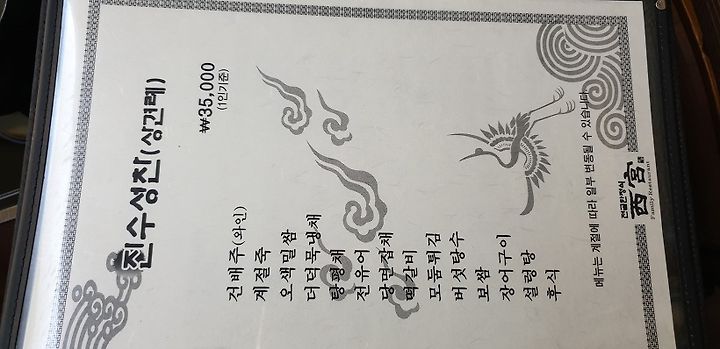 진수성찬(상견례)
₩35,000
(1인기준)
건배주(와인)
계절죽
오색밀쌈
더덕묵냉채
탕평채
전유어
당면잡채
떡갈비
모둠튀김
버섯탕수
보쌈
장어구이
설렁탕
후식
메뉴는 계절에 따라 일부 변동될 수 있습니다.
전골한정식
西宮
Family Restaurant